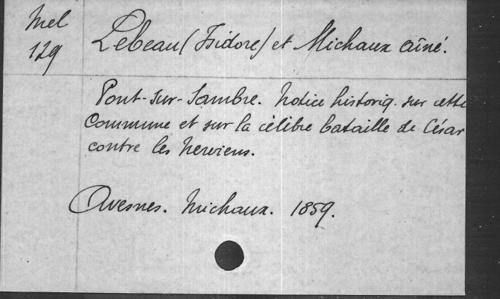 Mel
129
Lebeau (Isidore) et Michaux aîné.
Pont-sur-Sambre. Notice historiq. sur cette
Commune et sur la célèbre bataille de César
contre les Nerviens.
Avesnes. Michaux. 1859.